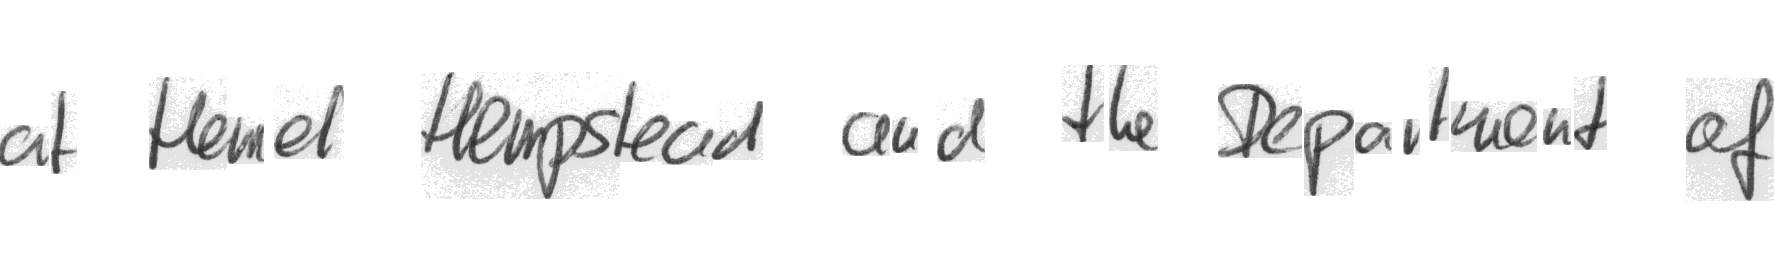 at Hemel Hempstead and the Department of